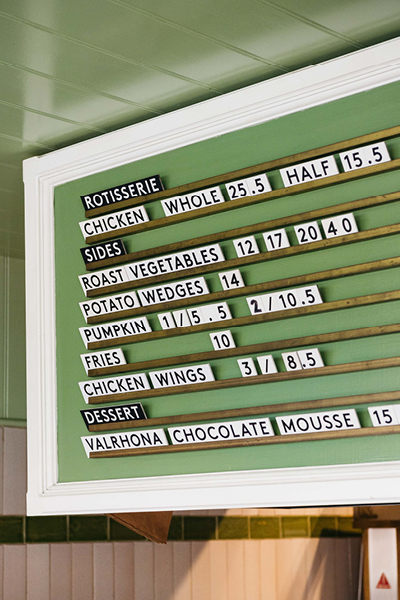 ROTISSERIE
CHICKEN WHOLE 25.5 HALF 15.5
SIDES
ROAST VEGETABLES 12 17 20 40
POTATO WEDGES 14
PUMPKIN 1/5.5 2/10.5
FRIES 10
CHICKEN WINGS 3/8.5
DESSERT
VALRHONA CHOCOLATE MOUSSE 15